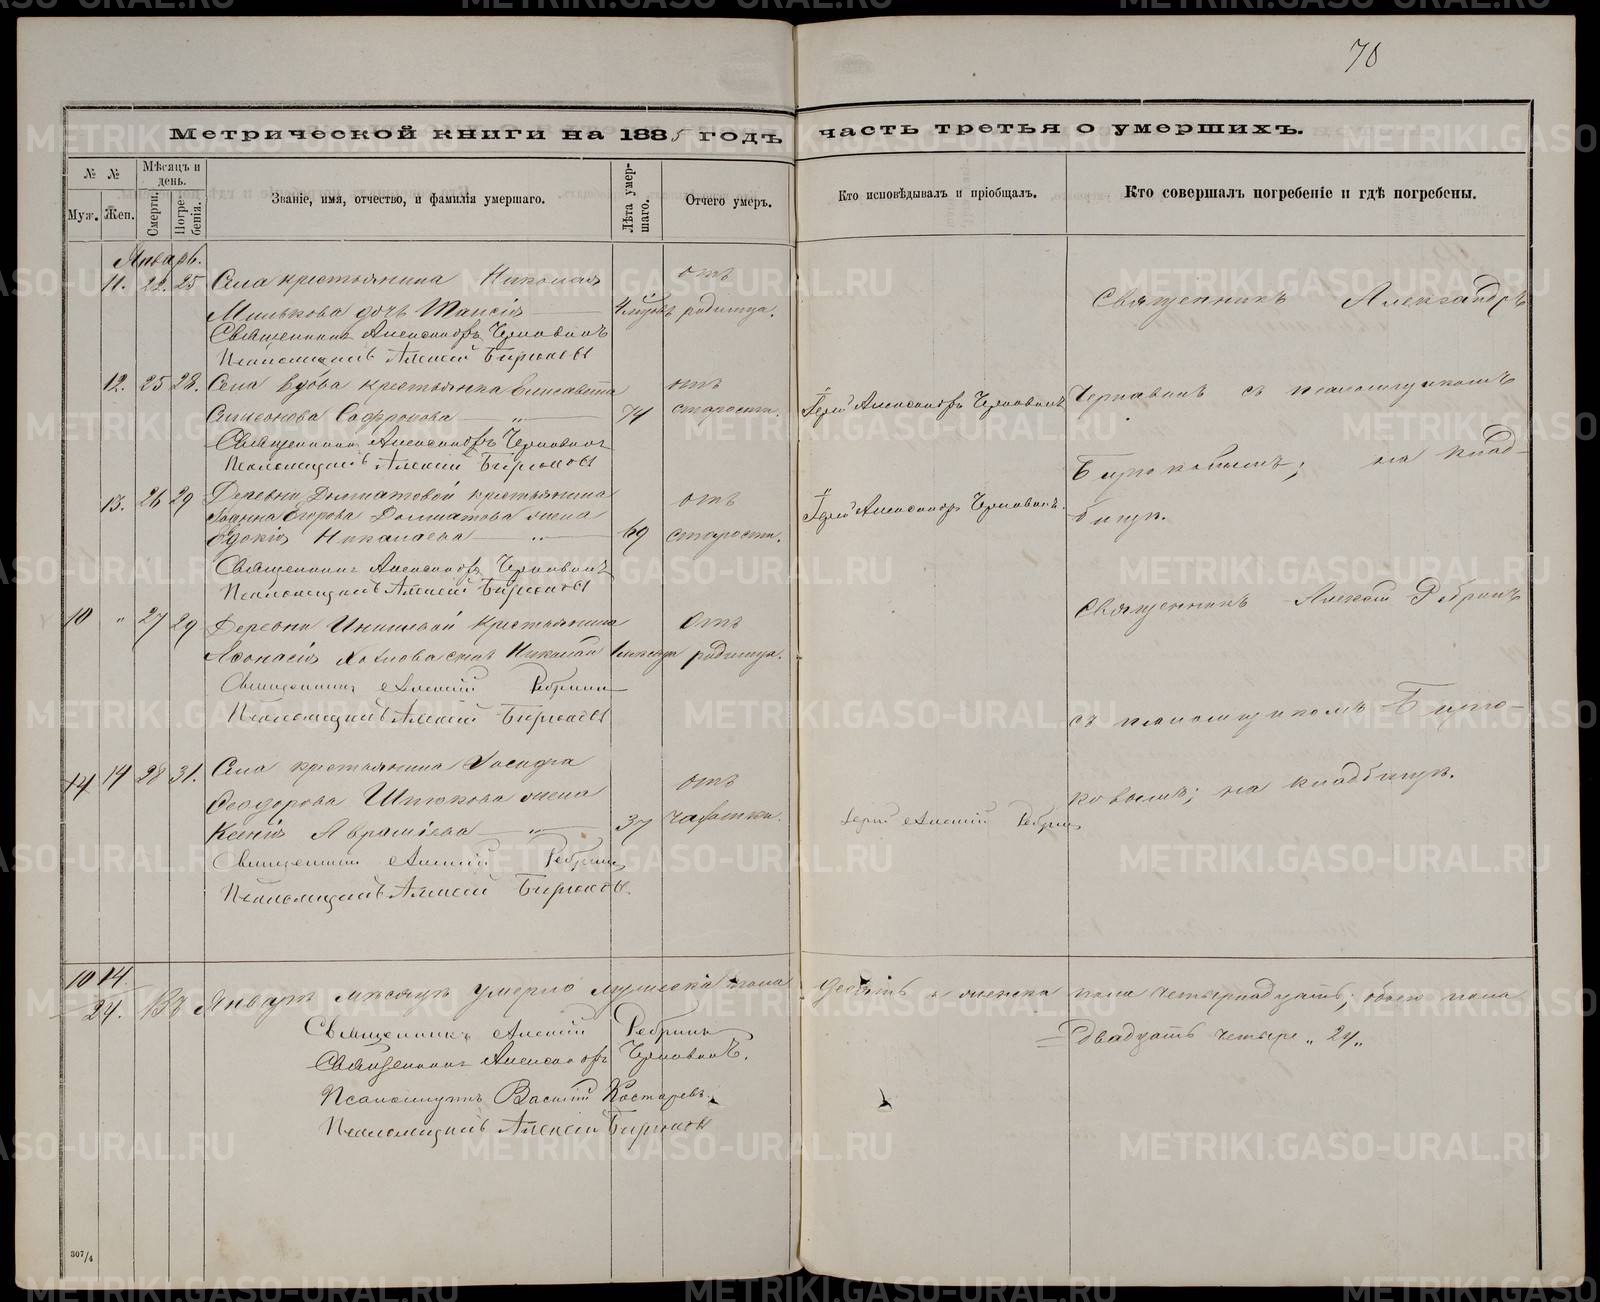 70
Метрической книги на 1885 годъ часть третья о умершихъ.
№ № Мѣсяцъ и день. Званіе, имя, отчество, и фамилія умершаго. Лѣта умершаго. Отчего умеръ. Кто исповѣдывалъ и пріобщалъ. Кто совершалъ погребеніе и гдѣ погребены.
Муж. Жен. Смерти. Погребенія.
Январь.
11. 22. 25 Села крестьянина Николая отъ
Милькова дочь Таисія родимца.
Священникъ Александръ
Псаломщикъ Алексій Бирюковъ
Священникъ Александръ
12. 25 28. Села вдова крестьянка Елисавета отъ
Симеонова Сафронова " 74 старости. Іерей Александръ
съ псаломщикомъ
Священникъ Александръ
Псаломщикъ Алексій Бирюковъ
Бирюковымъ; на клад-
бищѣ.
13. 26 29 Деревни Долматовой крестьянина отъ
Іоанна Егорова Долматова жена
Евдокія Николаева " 69 старости. Іерей Александръ
Священникъ Александръ
Псаломщикъ Алексій Бирюковъ
10 " 27 29 Деревни крестьянина отъ
Афонасія сынъ Николай родимца.
Священникъ Алексій Ребринъ
Псаломщикъ Алексій Бирюковъ
Священникъ Алексій Ребринъ
съ псаломщикомъ Бирю-
ковымъ; на кладбищѣ.
14 14 28 31. Села крестьянина Іосифа отъ
Феодорова жена
Ксенія Авраміева " 37 чахотки. Іерей Алексій Ребринъ
Священникъ Алексій Ребринъ
Псаломщикъ Алексій Бирюковъ.
10 14.
24. Въ Январѣ мѣсяцѣ умерло мужеска пола десять и женска пола четырнадцать, обоего пола
двадцать четыре „24„
Священникъ Алексій Ребринъ
Священникъ Александръ
Псаломщикъ Василій Костаревъ.
Псаломщикъ Алексій Бирюковъ
307/4
METRIKI.GASO-URAL.RU